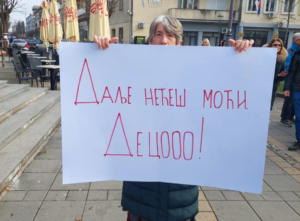 Даље нећеш моћи
Децооо!